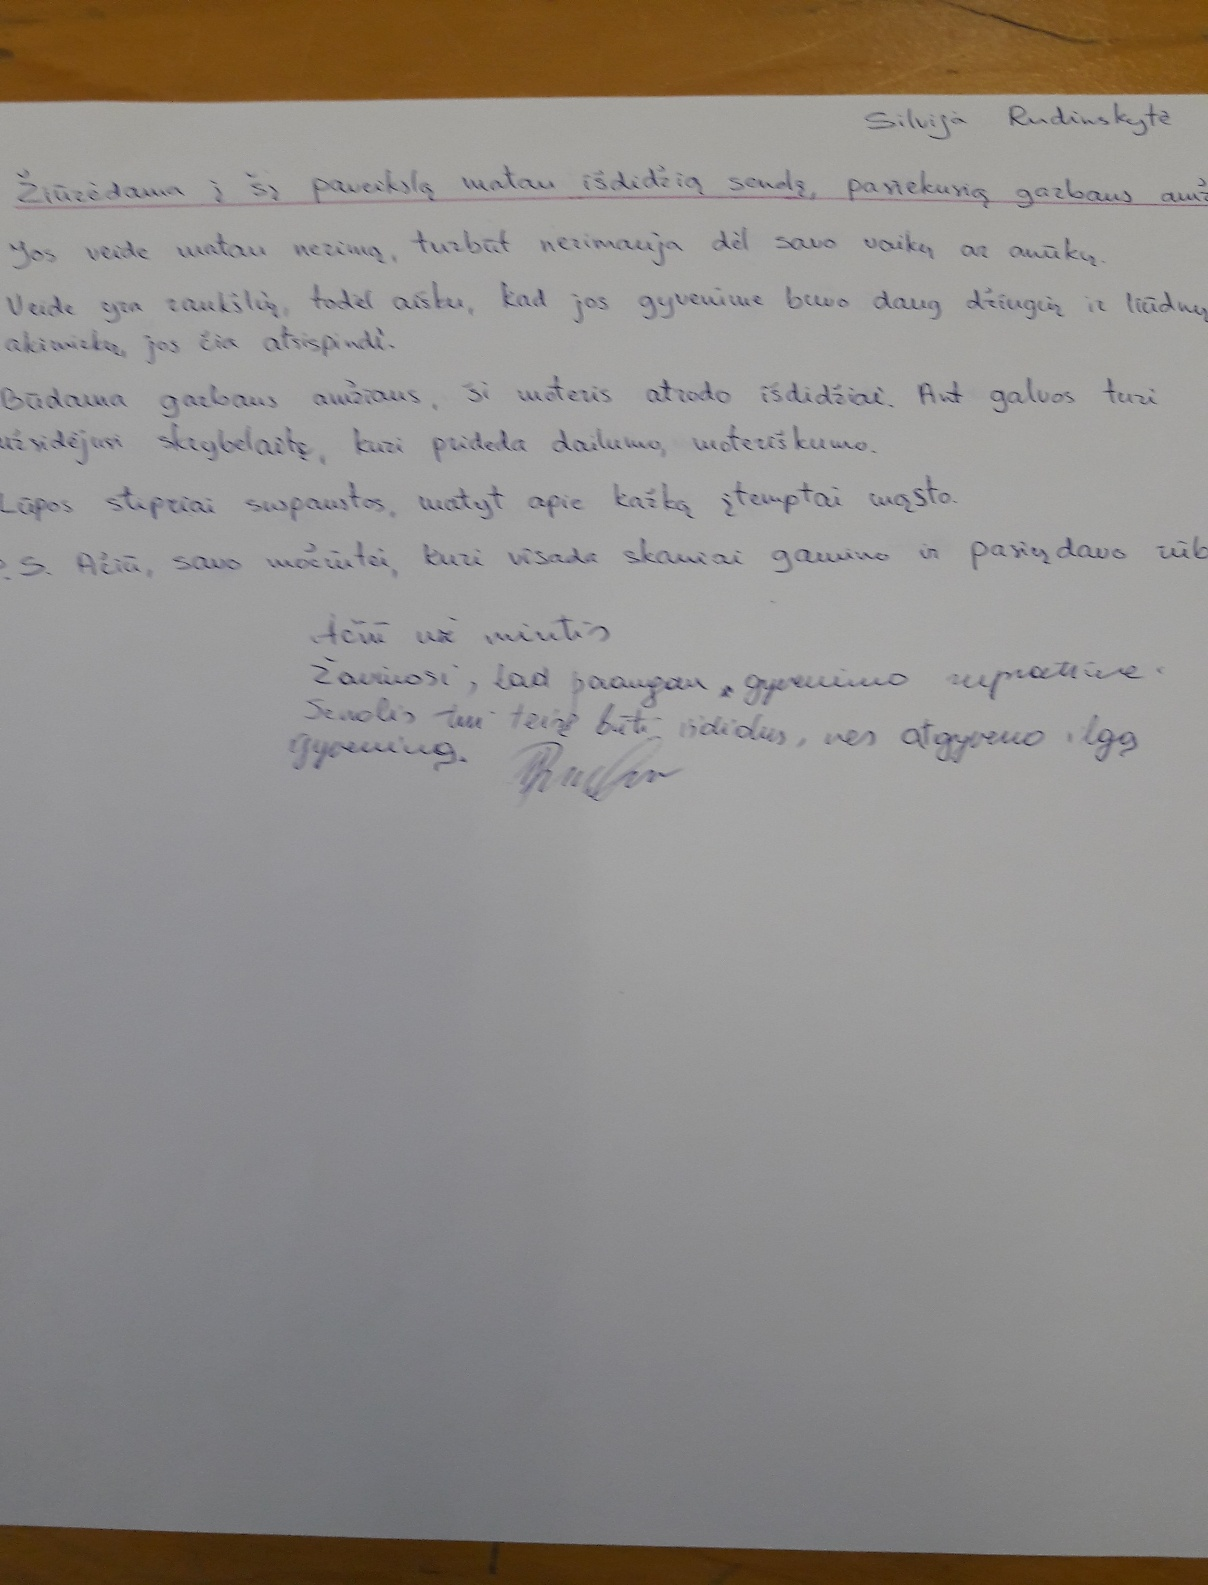 Silvija Rudinskytė
Žiūrėdama į šį paveikslą matau išdidžią senolę, pasiekusią garbaus amž
Jos veide matau nerimą, turbūt nerimauja dėl savo vaikų ar anūkų.
Veide yra raukšlių, todėl aišku, kad jos gyvenime buvo daug džiugių ir liūdnų
akimirkų, jos čia atsispindi.
Būdama garbaus amžiaus, ši moteris atrodo išdidžiai. Ant galvos turi
užsidėjusi skrybelaitę, kuri prideda dailumo, moteriškumo.
Lūpos stipriai suspaustos, matyt apie kažką įtemptai mąsto.
P.S. Ačiū, savo močiutei, kuri visada skaniai gamino ir pasiųdavo rūb
Ačiū už mintis
Žaviuosi, kad paaugau gyvenimo supratime.
Senolis turi teisę būti išdidus, nes atgyveno ilgą
gyvenimą.